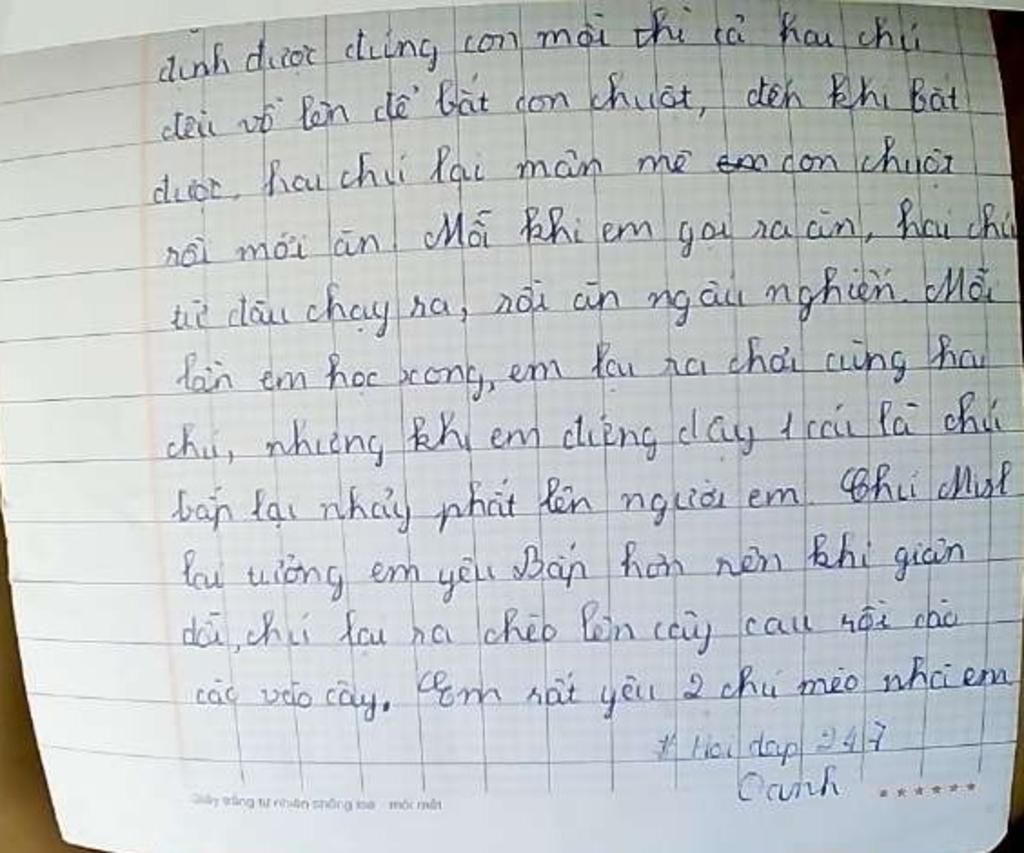 định được đúng con mồi thì cả hai chú
đều vồ lên để bắt con chuột, đến khi bắt
được, hai chú lại mân mê con chuột
rồi mới ăn. Mỗi khi em gọi ra ăn, hai chú
từ đâu chạy ra, rồi ăn ngấu nghiến. Mỗi
lần em học xong, em lại ra chơi cùng hai
chú, nhưng khi em đứng dậy 1 cái là chú
bắp lại nhảy phát lên người em. Chú Mył
lại tưởng em yêu Bắp hơn nên khi giận
dỗi, chú lại ra chèo lên cây cau rồi cào
các vào cây. Em rất yêu 2 chú mèo nhà em
# Hoidap 247
Oanh ******
Giấy trắng tự nhiên chống loá mỏi mắt